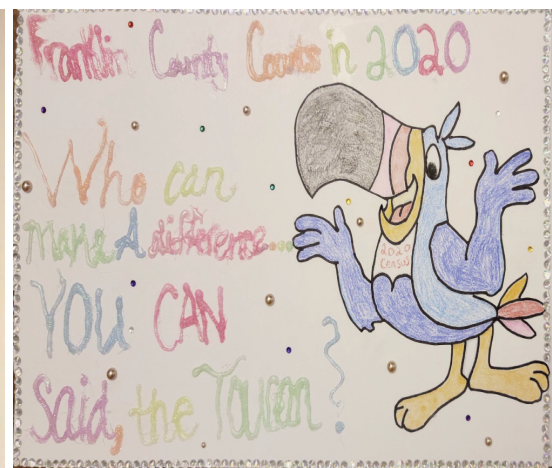 Franklin County Counts in 2020
Who can
make A difference....
YOU CAN
Said, the Toucan?
2020
Census